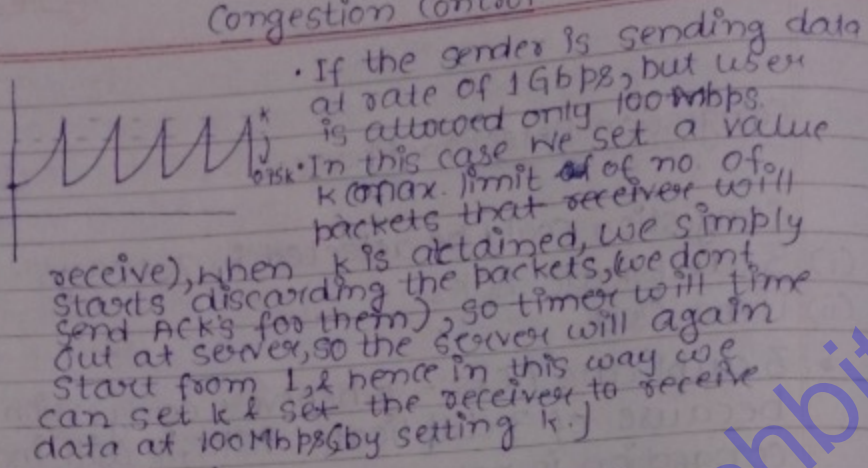 Congestion Control
• If the sender is sending data
at rate of 1Gbps, but user
is allocoed only 100 mbps.
• In this case we set a value
K
0.75K
K (max. limit of of no of
packets that receiver will
receive), when K is attained, we simply
starts discarding the packets, (we dont
send ACK's for them), so timer will time
out at server, so the server will again
start from 1, & hence in this way we
can set K & set the receiver to receive
data at 100Mbps (by setting K.]
hbit